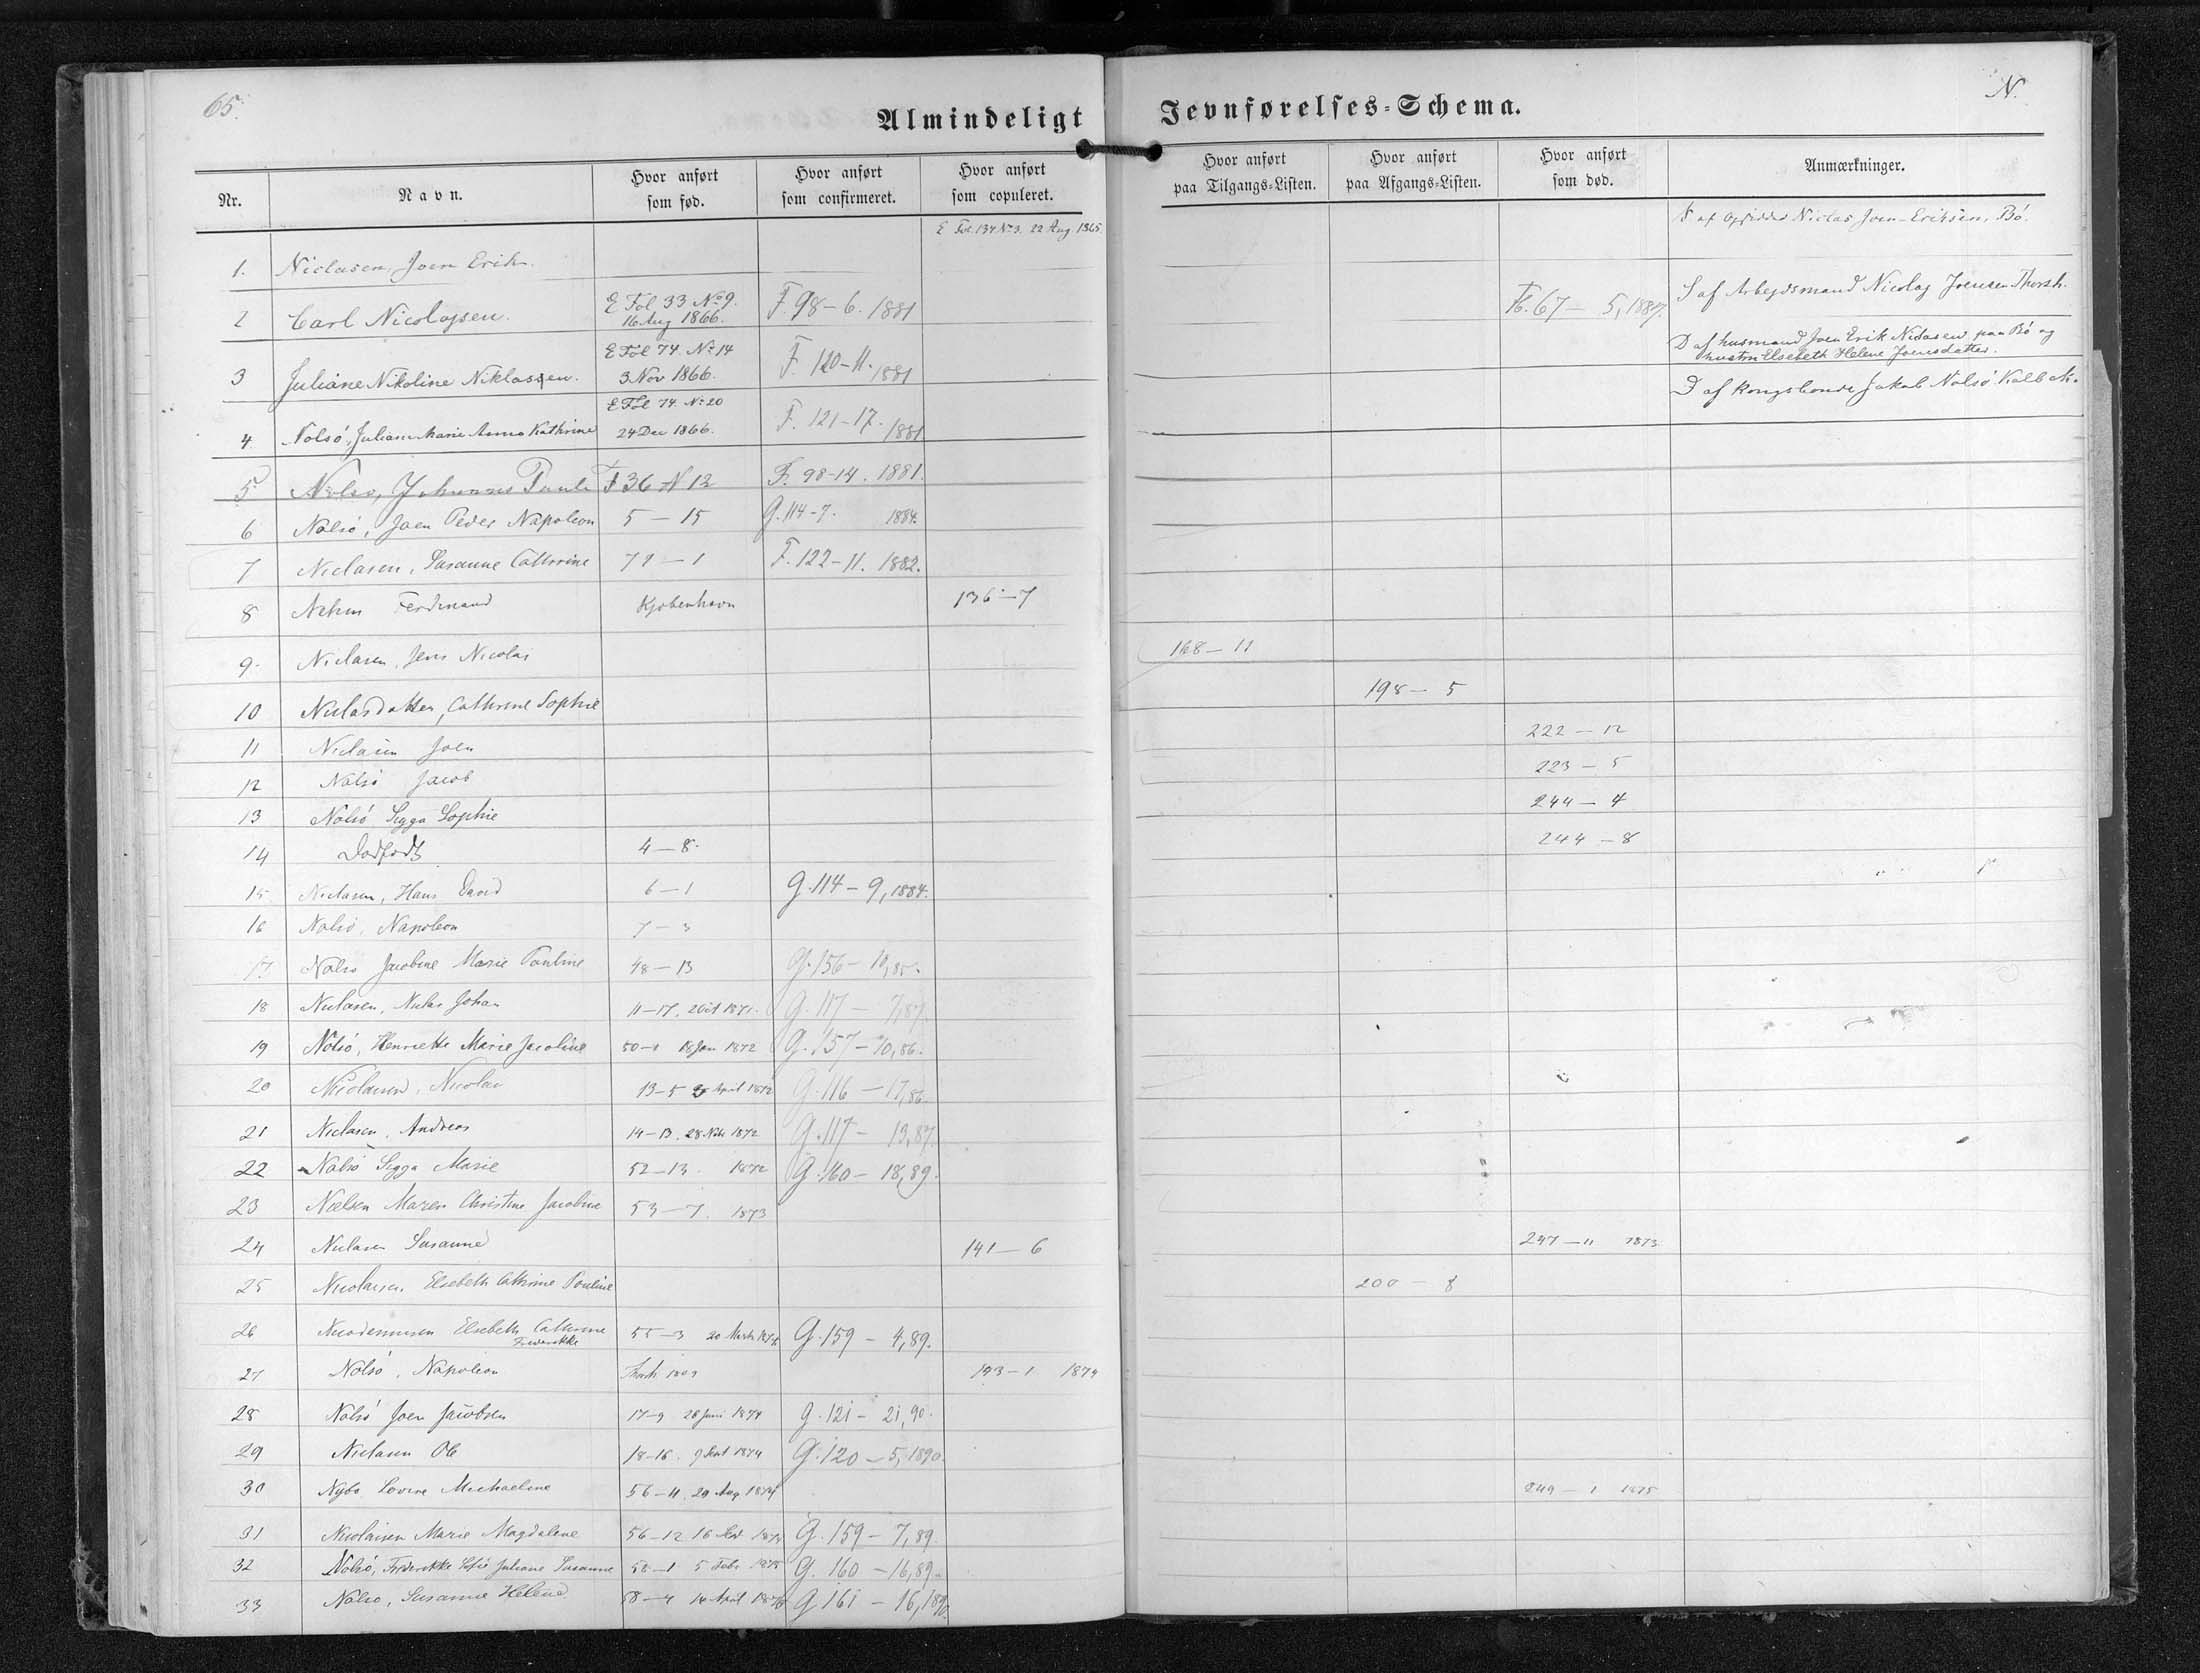 65.
Almindeligt Jevnførelses=Schema.
N.
Nr.
Navn.
Hvor anført som fød.
Hvor anført som confirmeret.
Hvor anført som copuleret.
Hvor anført paa Tilgangs=Listen.
Hvor anført paa Afgangs=Listen.
Hvor anført som død.
Anmærkninger.
1. Niclasen, Joen Erik. E Fol. 134 No 3. 22 Aug. 1865. S af Niclas Joen-Eriksen, Bø.
2 Carl Nicolajsen. E Fol 33 No 9. 16 Aug 1866. F. 98-6. 1881 67 - 5, 1887. S af Arbejdsmand Nicolaj Joensen Thorsh.
3 Juliane Nikoline Niklassen. E Fol 74. No 14 3 Nov 1866. F. 120-11. 1881 D af husmand Joen Erik Niclasen paa Bø og hustru Elsebeth Helene Joensdatter.
4 Nolsø, Juliane Marie Anna Kathrine E Fol 74. No 20 24 Dec 1866. F. 121-17. 1881 D af Kongsbonde Jakob Nolsø. Kalbak.
5 Nolsø, Johannes Paule F 36 N 12 F. 98-14. 1881.
6 Nolsø, Joen Peder Napoleon 5 - 15 G. 114-7. 1884.
7 Niclasen, Susanne Cathrine 71 - 1 F. 122-11. 1882.
8 Ferdinand Kjobenhavn 136-7
9. Niclasen, Jens Nicolai 168 - 11
10 Niclasdatter, Cathrine Sophie 198 - 5
11 Niclasen Joen 222 - 12
12 Nolsø Jacob 223 - 5
13 Nolsø Sigga Sophie 244 - 4
14 Dødfødt 4 - 8. 244 - 8
15 Niclasen, Hans David 6 - 1 G. 114 - 9, 1884.
16 Nolsø, Napoleon 7 - 3
17 Nolsø Jacobine Marie Pauline 48 - 13 G. 156 - 10, 85.
18 Niclasen, Niclas Johan 11-17. 2 Oct 1871. G. 117 - 7, 87.
19 Nolsø, Henriette Marie Jacoline 50-1 18 Jan 1872 G. 157 - 10, 86.
20 Nicolaisen, Nicolai 13-5 April 1872 G. 116 - 17, 86.
21 Niclasen, Andreas 14-13. 28 Nov 1872 G. 117 - 13, 87.
22 Nolsø Sigga Marie 52-13. 1872 G. 160 - 18, 89.
23 Nielsen Maren Christine Jacobine 53-7. 1873
24 Niclasen Susanne 141 - 6 247 - 11 1873
25 Nicolaisen, Elsebeth Cathrine Pouline 200 - 8
26 Nicodemusen Elsebeth Cathrine Frederikke 55-3 20 Marts 1874 G. 159 - 4, 89.
27 Nolsø, Napoleon 143-1 1874
28 Nolsø Joen Jacobsen 17-9 26 Juni 1874 G. 121 - 21, 90.
29 Niclasen Ole 18-16. 9 Sept 1874 G. 120 - 5, 1890.
30 Nybo Lovise Michaeline 56-11. 29 Aug 1874 249 - 1 1875
31 Nicolaisen Marie Magdalene 56-12 16 1874 G. 159 - 7, 89.
32 Nolsø, Frederikke Sofie Juliane Susanne 58-1 5 Febr 1875 G. 160 - 16, 89.
33 Nolsø, Susanne Helene 58-4 14 April 1875 G 161 - 16, 1890.